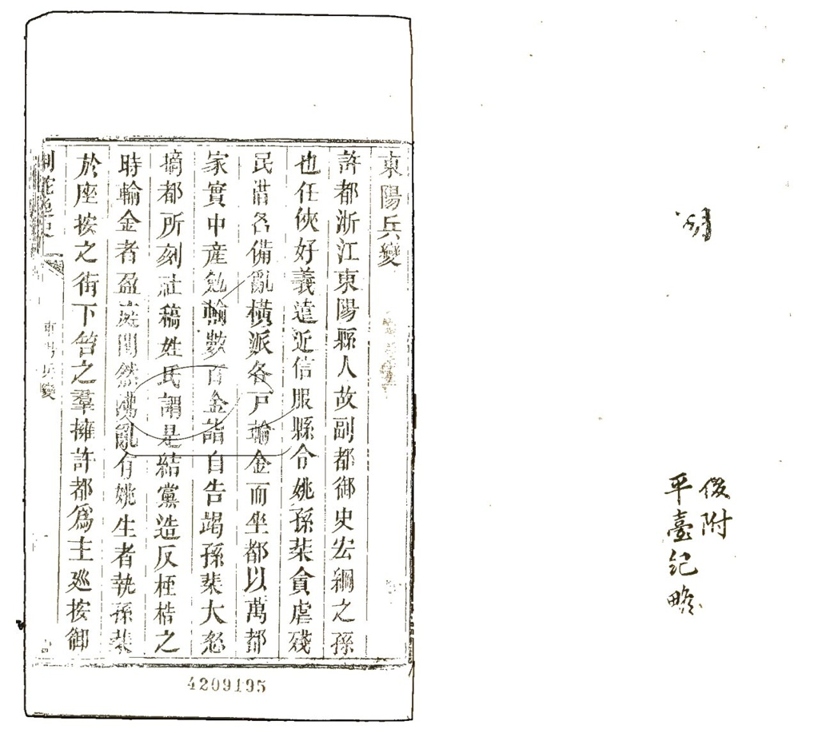 後附
平臺紀畧
東陽兵變
許都浙江東陽縣人故副都御史宏綱之孫
也任俠好義遠近信服縣令姚孫棐貪虐殘
民借名備亂橫派各戶輸金而坐都以萬都
家實中產勉輸數百金詣自告竭孫棐大怒
摘都所刻社稿姓氏謂是結黨造反桎梏之
時輸金者盈庭閧然亂有姚生者執孫棐
於座按之街下笞之羣擁許都爲主廵按御
荊駝逸史
東陽兵變
4209195